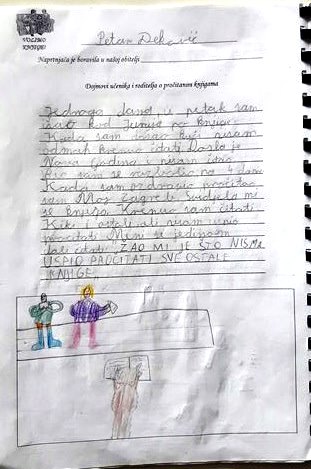 VOLIMO
KNJIGU
Petar Deković
Naprtnjača je boravila u našoj obitelji
Dojmovi učenika i roditelja o pročitanim knjigama
Jednoga dana u petak sam
išao kod Junija po knjige.
Kada sam došao kući nisam
odmah krenuo čitati. Došla je
Nova Godina i nisam čitao
Bio sam se razbolio na 4 dana
Kada sam ozdravio pročitao
sam Moj Zagreb. Svidjela mi
se knjiga. Krenuo sam čitati
Kiki i ostale ali nisam
pročitati. Meni se
dali čitati. ŽAO MI JE ŠTO NISMO
USPIO PROČITATI SVE OSTALE
KNJIGE.